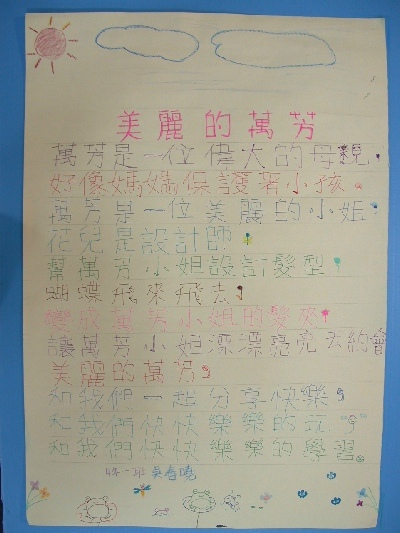 美麗的萬芳
萬芳是一位偉大的母親
好像媽媽保護著小孩
萬芳是一位美麗的小姐
花兒是設計師
幫萬芳小姐設計髮型
蝴蝶飛來飛去
變成萬芳小姐的髮夾
讓萬芳小姐漂漂亮亮去約會
美麗的萬芳
和我們一起分享快樂
和我們快快樂樂的玩
和我們快快樂樂的學習。